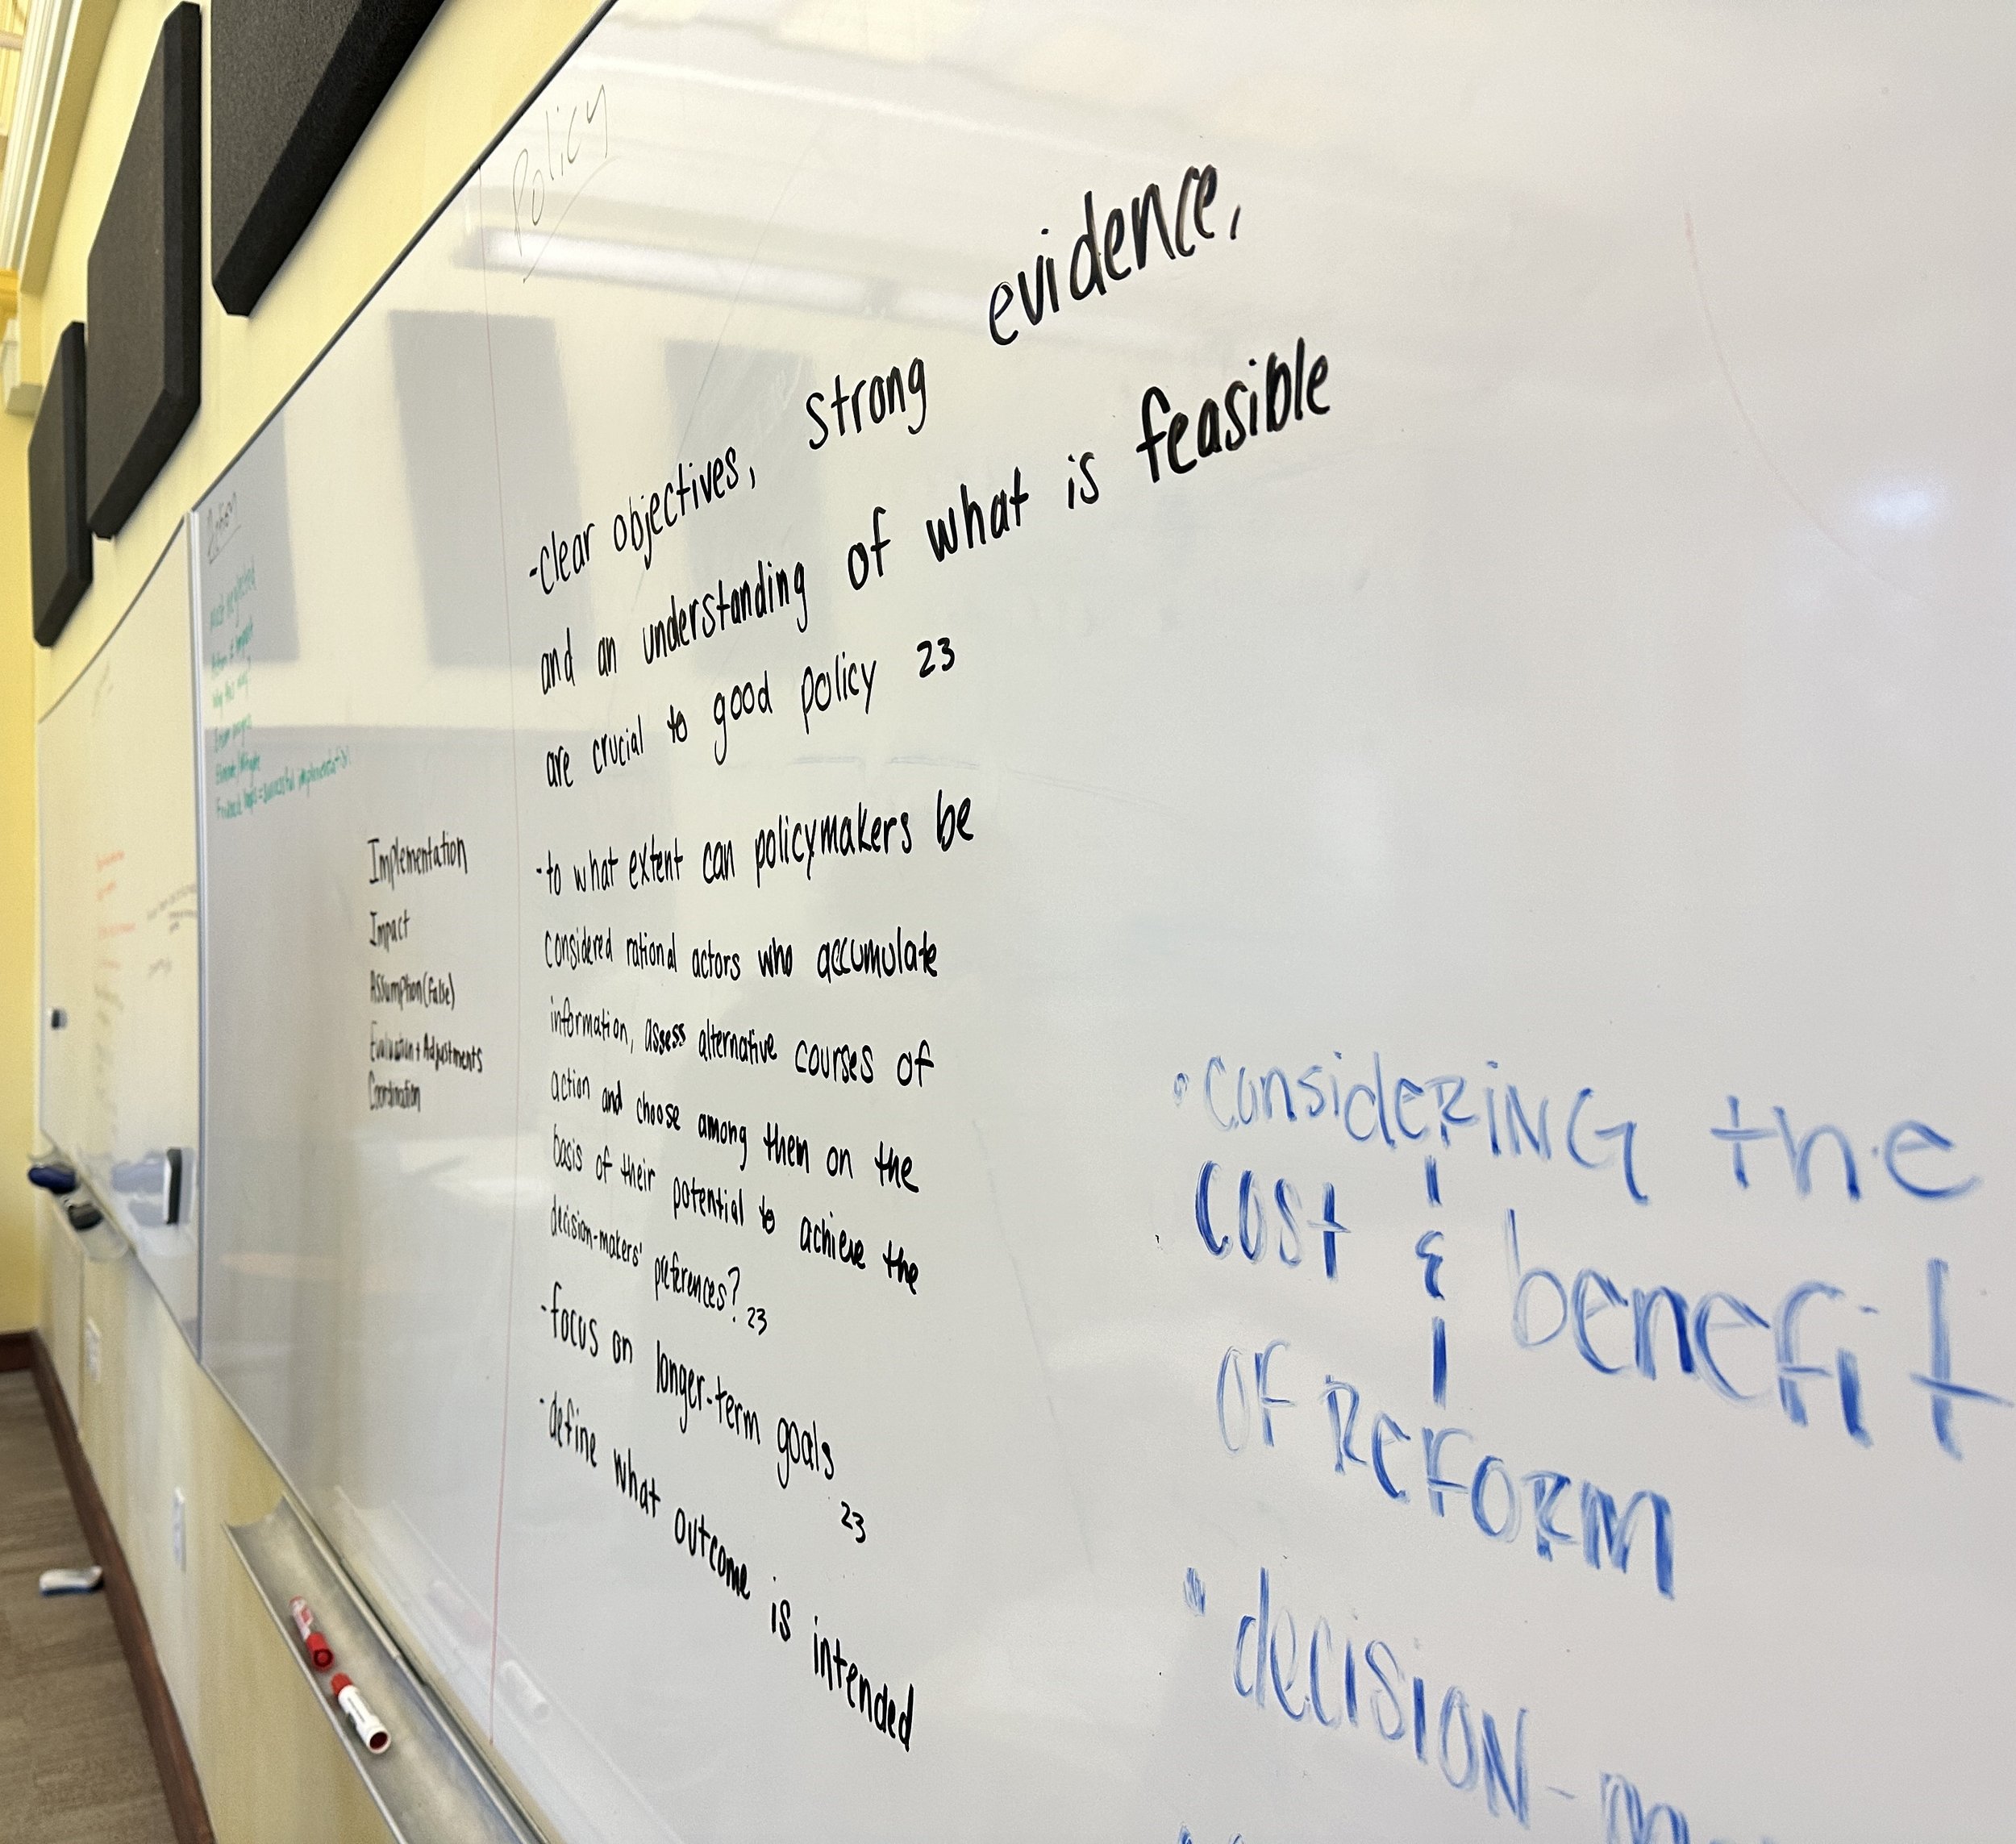 Policy
-clear objectives, strong evidence,
and an understanding of what is feasible
are crucial to good policy 23
-to what extent can policymakers be
considered rational actors who accumulate
information, assess alternative courses of
action and choose among them on the
basis of their potential to achieve the
decision-makers' preferences? 23
-focus on longer-term goals
23
-define what outcome is intended
Implementation
Impact
Assumption (False)
Evaluation + Adjustments
Coordination
• ConsideRiNG the
COSt & benefit
OF ReFORM
• decisioN-